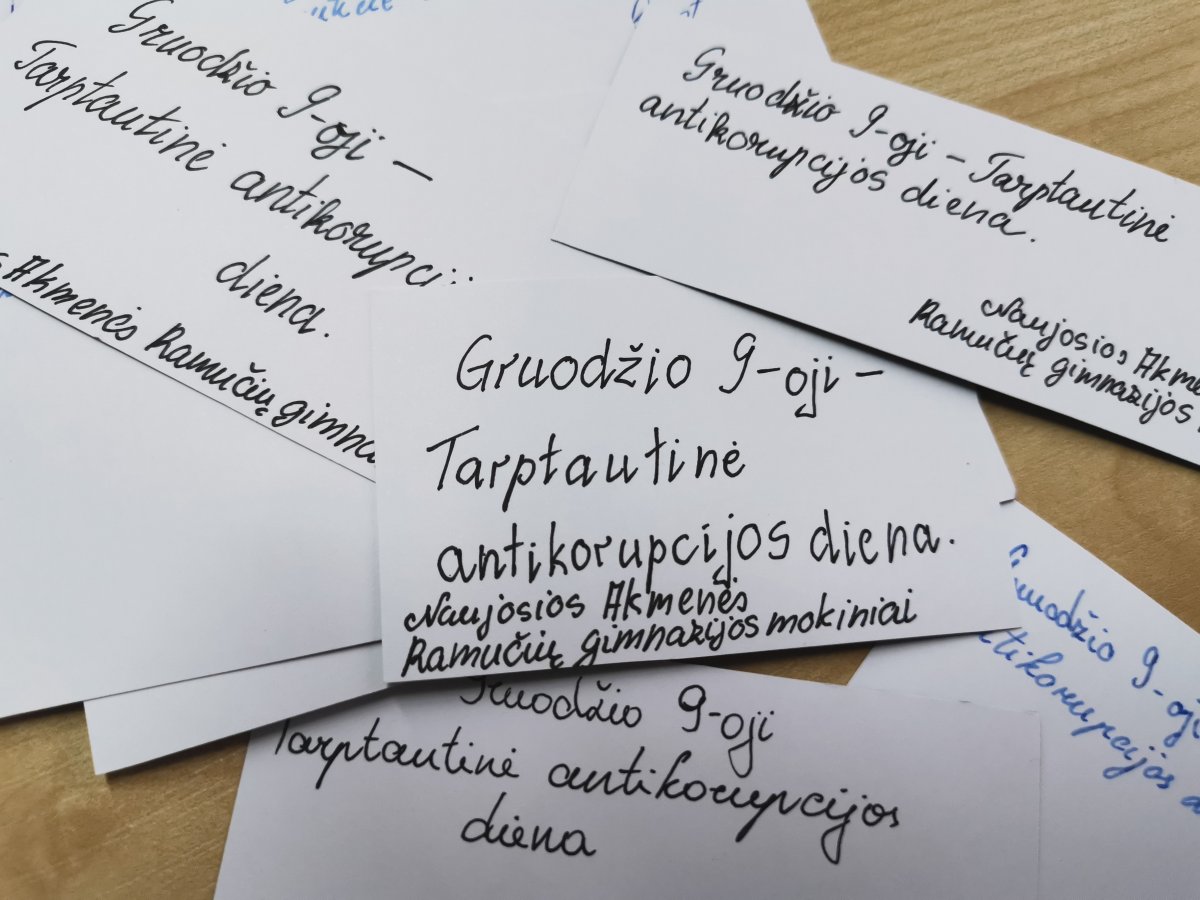 Gruodžio 9-oji —
Tarptautinė antikorupcij
diena.
Akmenės Ramučių gimna
Gruodžio 9-oji – Tarptautinė
antikorupcijos diena.
Naujosios Akme
Ramučių gimnazijos
Gruodžio 9-oji –
Tarptautinė
antikorupcijos diena.
Naujosios Akmenės
Ramučių gimnazijos mokiniai
Gruodžio 9-oji
Tarptautinė antikorupcijos
diena
Gruodžio 9-oji
antikorupcijos d